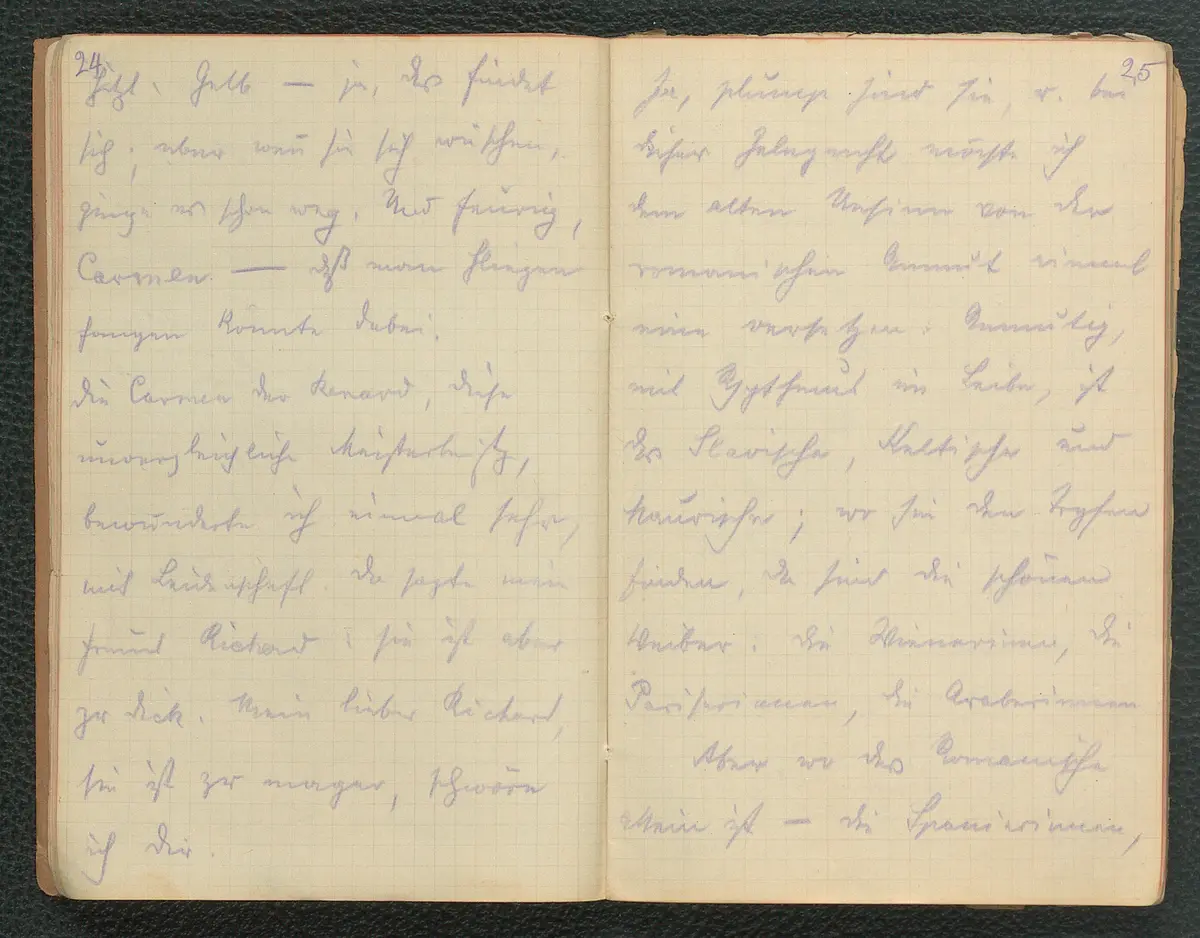 24
Gelb — ja, das findet
sich; aber wen̄ sie sich wüschen,
ginge es schon weg. Und feurig,
Carmen. — daß man Fliegen
fangen könnte dabei.
die Carmen der Renard, diese
unvergleichliche Meisterleistg,
bewunderte ich einmal sehr,
mit Leidenschaft. Da sagte mein
Freund Richard: sie ist aber
zu dick. Mein lieber Richard,
sie ist zu mager, schwöre
ich dir.
25
Ja, plump sind sie, u. bei
dieser Gelegenht möchte ich
dem alten Unsinn von der
romanischen Anmut einmal
eine versetzen: Anmutig,
mit Rythmus im Leibe, ist
das Slavische, Keltische und
Maurische; wo sie den Tropfen
finden, da sind die schönen
Weiber. die Wienerinen, die
Pariserinnen, die Araberinnen
Aber wo das Romanische
rein ist — die Spanierinnen,